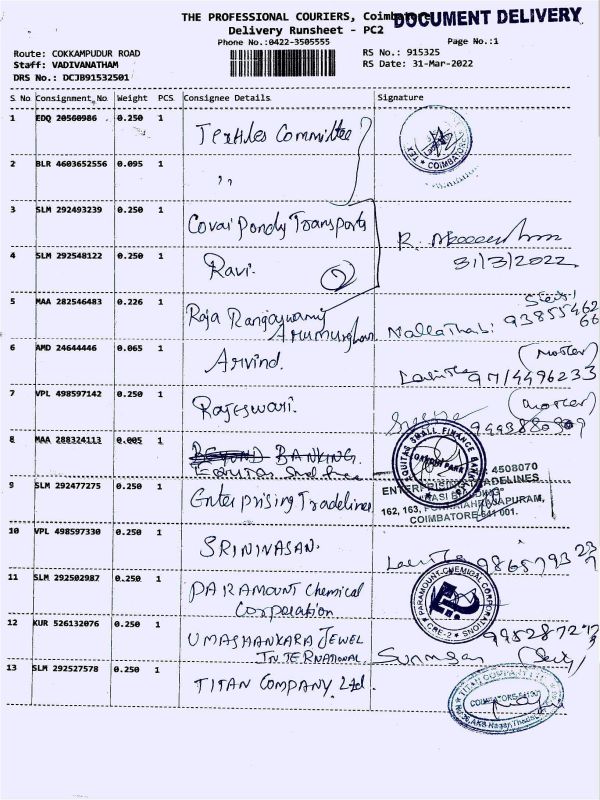 THE PROFESSIONAL COURIERS, Coimbatore
DOCUMENT DELIVERY
Delivery Runsheet - PC2
Phone No.:0422-3505555
Page No.:1
Route: COKKAMPUDUR ROAD
RS No.: 915325
Staff: VADIVANATHAM
RS Date: 31-Mar-2022
DRS No.: DCJB91532501
S No Consignment No Weight PCS Consignee Details Signature
1 EDQ 20560986 0.250 1 Textiles Committee
COIMBATORE
2 BLR 4603652556 0.095 1 ,,
3 SLM 292493239 0.250 1 Covai Pondy Transports
4 SLM 292548122 0.250 1 Ravi.
31/3/2022
5 MAA 282546483 0.226 1 Raja Rangaswamy
Arumurghan
6 AMD 24644446 0.065 1 Arvind. 9714496233
7 VPL 498597142 0.250 1 Rajeswari.
8 MAA 288324113 0.005 1 BANKING
EQUITAS SMALL FINANCE BANK
GANDHI PARK
9 SLM 292477275 0.250 1 Enterprising Tradelines
4508070
ENTERPRISING TRADELINES
162, 163,
COIMBATORE-641 001.
10 VPL 498597330 0.250 1 SRINIVASAN.
11 SLM 292502987 0.250 1 PARAMOUNT Chemical
Corporation
PARAMOUNT CHEMICAL CORPORATION
CBE-2
12 KUR 526132076 0.250 1 UMASHANKARA JEWEL
INTERNATIONAL
13 SLM 292527578 0.250 1 TITAN COMPANY Ltd.
TITAN COMPANY